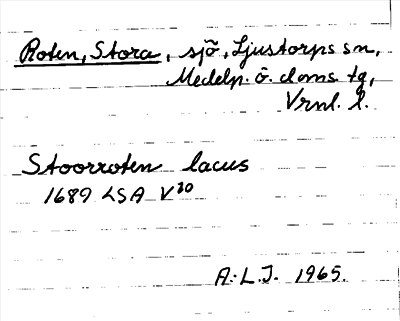 Roten, Stora, sjö, Ljustorps sn,
Medelp. ö. doms. tg,
Vrnl. l.
Stoorroten lacus
1689 LSA V30
A.L.J. 1965.